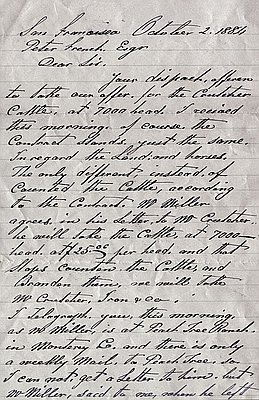 San Francisco October 2. 1884
Peter French. Esqr
Dear Sir.
Your despach. offeren
to take our offer. for the Crutcher
Cattle, at 7000 head. I recieved
this morning. of course the
Contract Stands, just the same.
In regard the Land. and horses,
The only different instead of
Counted the Cattle, according
to the Contract. Mr Miller
agrees, in his Letter, to Mr Crutcher
he will take the Cattle, at 7000—
head. at $25 00 per head, and that
Stops Counten the Cattle, and
Branden them, we will take
Mr Crutcher, Iron & co.
I Telegraph. you, this morning,
as Mr Miller, is at Peach Tree Ranch.
in Monterey Co. and there is only
a weekly Mail. to Peach Tree. so
I can not get a Letter to him. but
Mr Miller, said to me, when he left